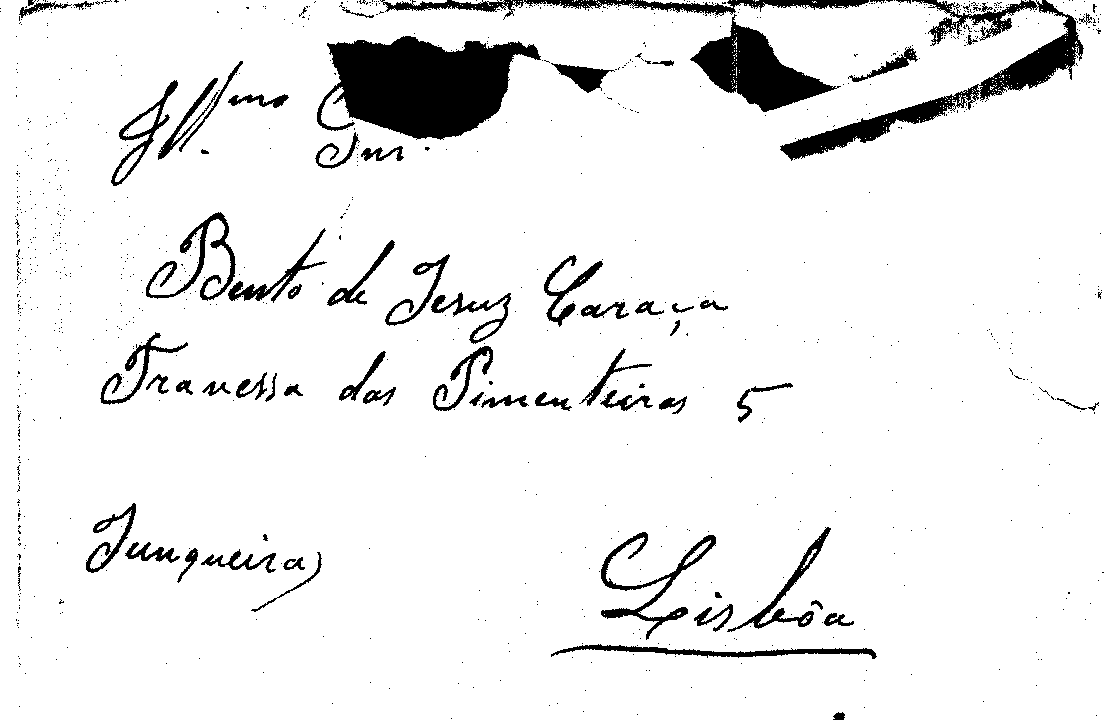 Ill.mo
Snr.
Bento de Jesuz Caraça
Travessa das Pimenteiras 5
Junqueira
Lisbôa